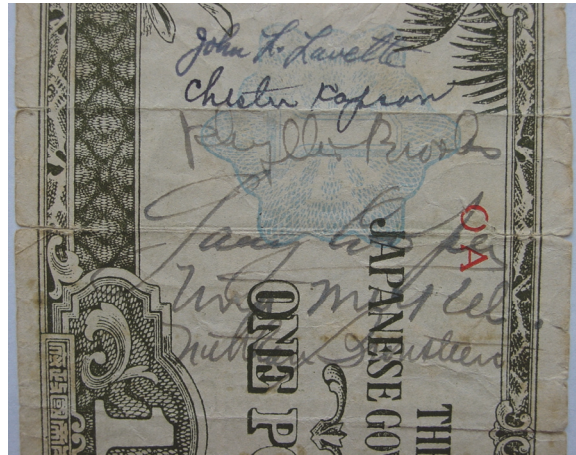 John L. Lavette
Chester Kapson
Phyllis Brooks
Gary Cooper
Una Merkel
OA
THE
JAPANESE GOV
ONE PO
1